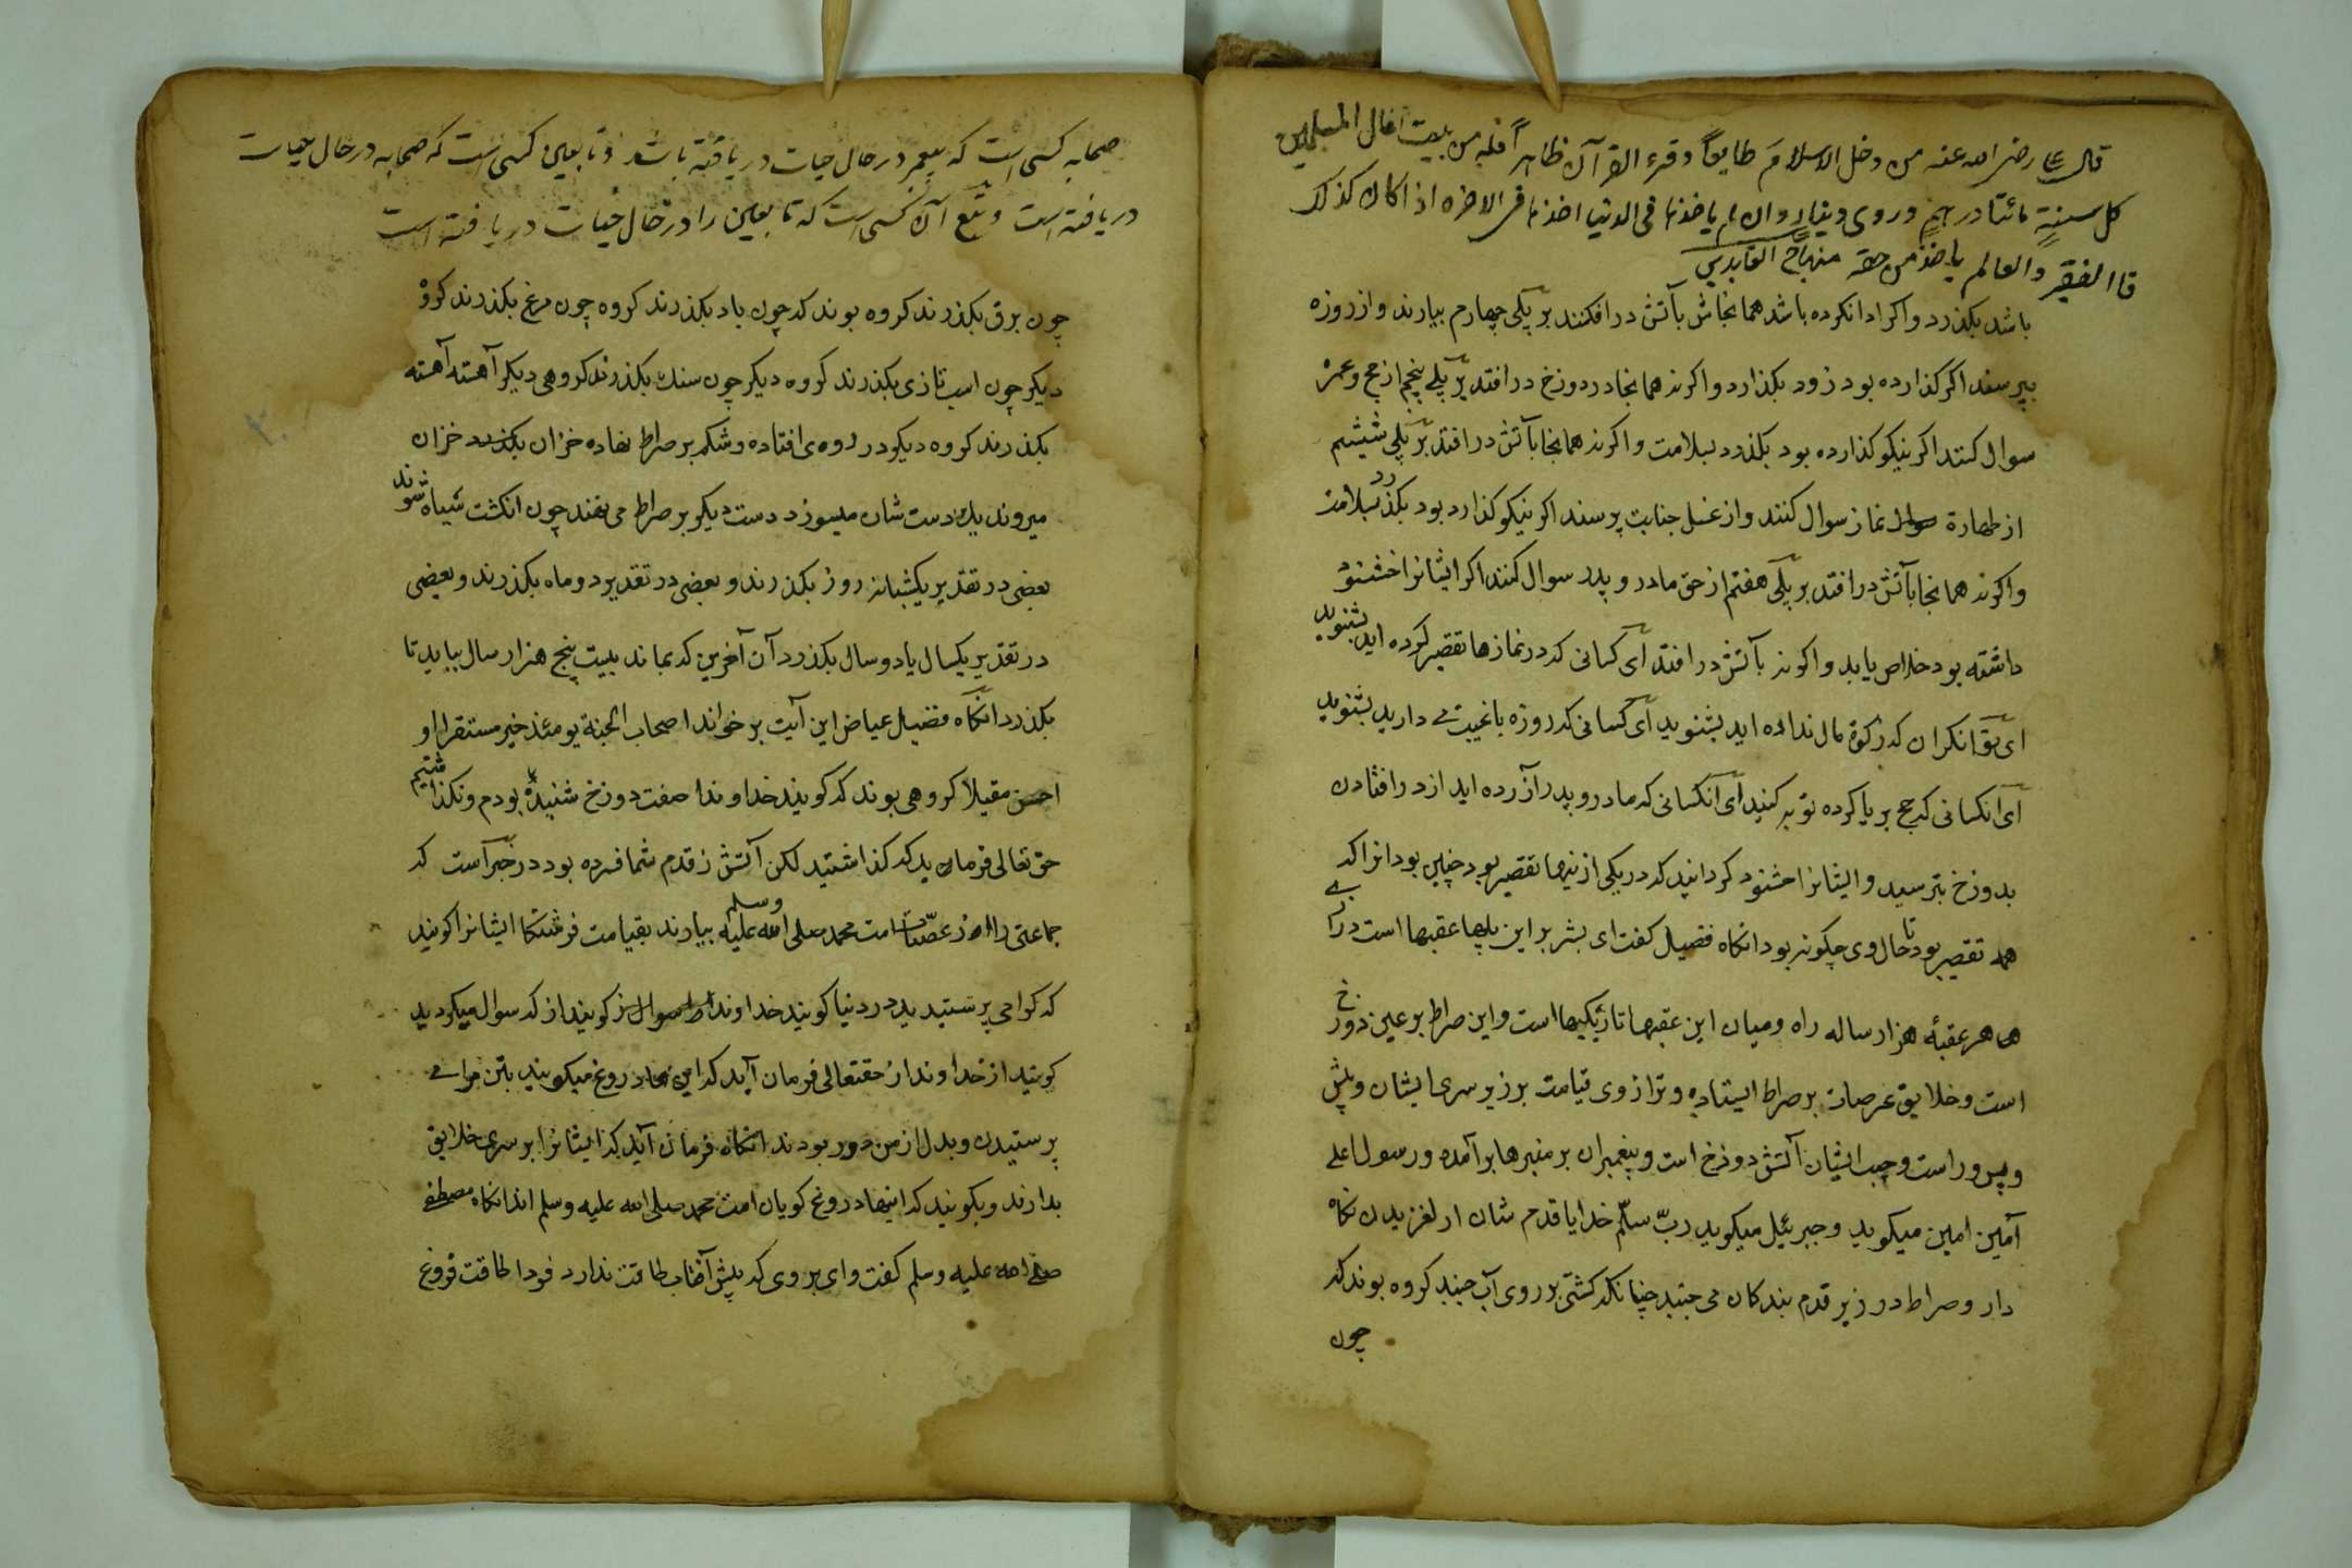 قال علی رضی الله عنه من دخل الاسلام طایعاً و قرء القرآن ظاهراً فله من بیت المال المسلمین
کل سنةٍ مائتا درهمٍ و روی دینار و ان لم یاخذها فی الدنیا اخذها فی الاخره اذا کان کذلک
فالفقیر والعالم یاخذ من حقه منهاج العابدین
باشد بکذرد واکر ادا نکرده باشد همانجاش بآتش درافکنند بر پلی چهارم بیارند واز روزه
بپرسند اکر کذارده بود زود بکذارد واکرنه همانجا در دوزخ درافتد بر پلی پنجم از حج وعمره
سوال کنند اکر نیکو کذارده بود بکذرد بسلامت واکرنه همانجا بآتش درافتد بر پلی ششم
از طهارة نماز سوال کنند واز غسل جنابت پرسند اکر نیکو کذارد بود بکذرد بسلامت
واکرنه همانجا بآتش درافتد بر پلی هفتم از حق مادر و پدر سوال کنند اکر ایشانرا خشنود
داشته بود خلاص یابد واکرنه بآتش درافتد آی کسانی که در نمازها تقصیر کرده اید بشنوید
ای توانکران که زکوة مال نداده اید بشنوید آی کسانی که روزه با غیبت می دارید بشنوید
آی آنکسانی که حج بریا کرده توبه کنید آی آنکسانی که مادر و پدر آزرده اید از درافتادن
بدوزخ بترسید و ایشانرا خشنود کردانید که در یکی از ینها تقصیر بود چنین بود انرا که
همه تقصیر بود تا حال وی چکونه بود انکاه فضیل کفت ای بشر بر این پلها عقبها است درازی
هر عقبهٔ هزار ساله راه ومیان این عقبها تاریکیها است واین صراط بر عین دوزخ
است وخلایق عرصات بر صراط ایستاده وترازوی قیامت بر زیر سری ایشان وپیش
وپس وراست وچب ایشان آتش دوزخ است وپیغمبران بر منبرها برآمده ورسول علی
آمین امین میکوید وجبرئیل میکوید ربّ سلّم خدایا قدم شان از لغزیدن نکاه
دار وصراط در زیر قدم بندکان می جنبد چنانکه کشتی بر روی آب جنبد کروه بوند که
چون
صحابه کسی است که پیغمبر در حال حیات دریافته باشد و تابعین کسی است که صحابه در حال حیات
دریافته است و تبع آن کسی است که تابعین را در حال حیات دریافته است
چون برق بکذرند کروه بوند که چون باد بکذرند کروه چون مرغ بکذرند کروه
دیکر چون اسب تازی بکذرند کروه دیکر چون سنک بکذرند کروهی دیکر آهسته آهسته
بکذرند کروه دیکر در روه ی افتاده وشکم بر صراط نهاده خزان بکذرد خزان
میروند یک دست شان میسوزد دست دیکر بر صراط می نهند چون انکشت سیاه شوند
بعضی در تقدیر یکشبانه روز بکذرند و بعضی در تقدیر دو ماه بکذرند و بعضی
در تقدیر یکسال یا دو سال بکذرد آن آخرین که بماند بیست پنج هزار سال بباید تا
بکذرد انکاه فضیل عیاض این آیت بر خواند اصحاب الجنة یومئذ خیر مستقرا و
احسن مقیلا کروهی بوند که کویند خداوندا صفت دوزخ شنیده بودم ونکذاشتیم
حق تعالی فرماید که کذاشتید لکن آتش ز قدم شما فسرده بود در خبر است که
جماعتی را از عصّات امت محمد صلی الله علیه وسلم بیارند بقیامت فرشتکا ایشانرا کویند
که کرا می پرستیدید در دنیا کویند خداوند را کویند از که سوال میکردید
کویند از خداوند از حقتعالی فرمان آید که این دروغ میکویند بتن مرا می
پرستیدن وبدل از من دور بودند انکاه فرمان آید که ایشانرا بر سری خلایق
بدارند وبکویند که اینها دروغ کویان امت محمد صلی الله علیه وسلم اند انکاه مصطفی
صلی الله علیه وسلم کفت وای بر وی که پیش آفتاب طاقت ندارد فردا طاقت فروغ